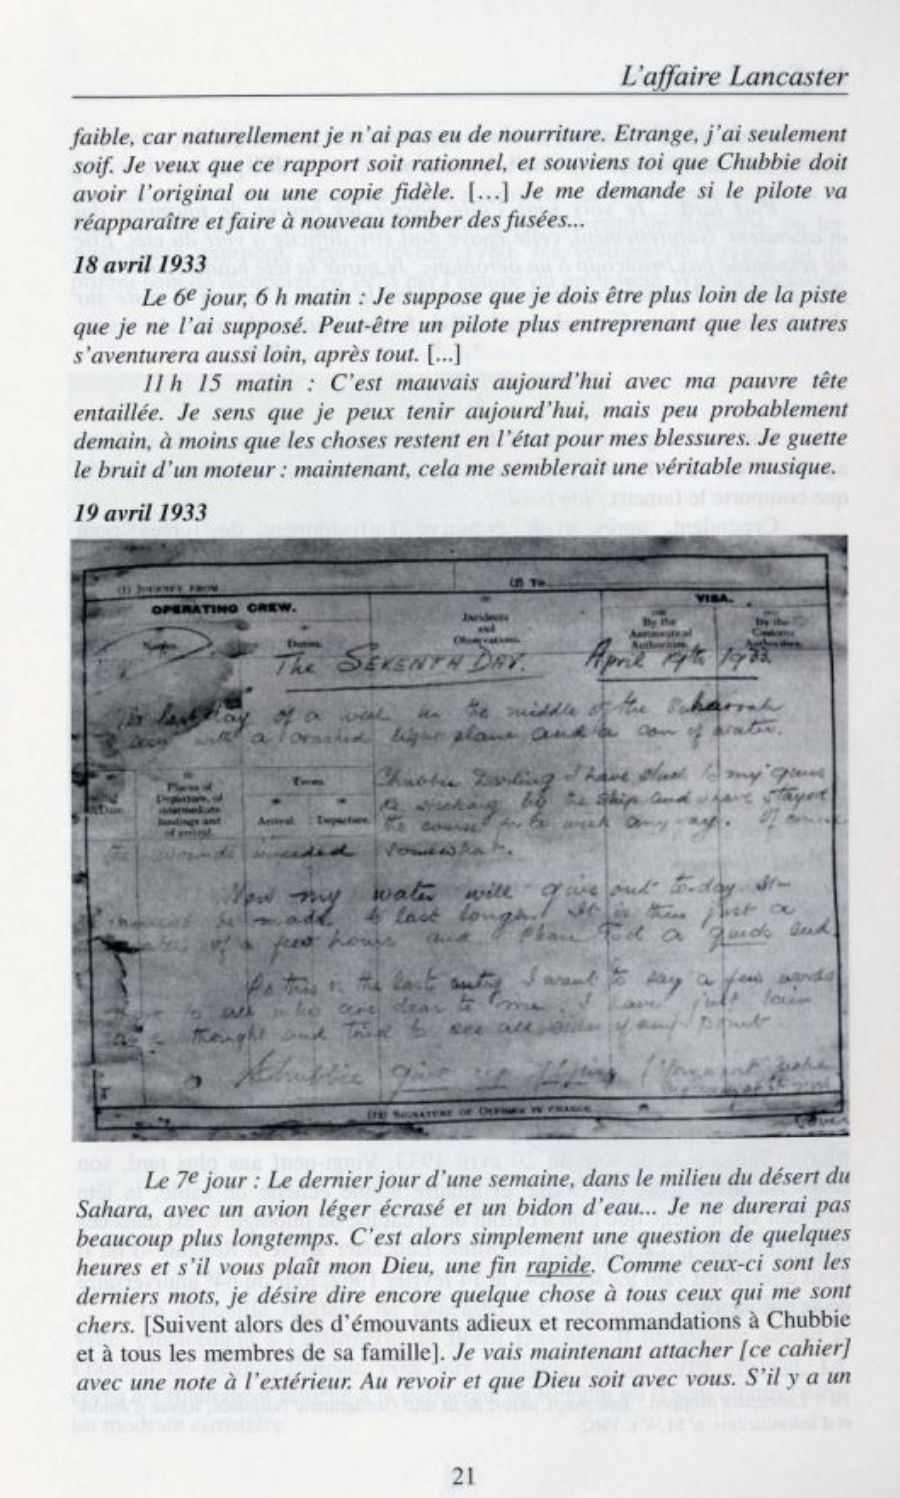 L'affaire Lancaster
faible, car naturellement je n'ai pas eu de nourriture. Etrange, j'ai seulement
soif. Je veux que ce rapport soit rationnel, et souviens toi que Chubbie doit
avoir l'original ou une copie fidèle. [...] Je me demande si le pilote va
réapparaître et faire à nouveau tomber des fusées...
18 avril 1933
Le 6e jour, 6 h matin : Je suppose que je dois être plus loin de la piste
que je ne l'ai supposé. Peut-être un pilote plus entreprenant que les autres
s'aventurera aussi loin, après tout. [...]
11 h 15 matin : C'est mauvais aujourd'hui avec ma pauvre tête
entaillée. Je sens que je peux tenir aujourd'hui, mais peu probablement
demain, à moins que les choses restent en l'état pour mes blessures. Je guette
le bruit d'un moteur : maintenant, cela me semblerait une véritable musique.
19 avril 1933
(1) JOURNEY FROM (2) To
OPERATING CREW. VISA.
Incidents and Observations. By the Aeronautical Authorities. By the Customs Authorities.
Names. Duties.
The SEVENTH DAY. April 19th 1933.
The last day of a week in the middle of the
with a crashed light plane and a can of water.
Places of Departure, of intermediate landings and of arrival. Times.
Date. Arrival. Departure.
Chubbie Darling I have stuck to my guns
sticking by the ship and have stayed
the course for a week anyway. Of course
the wounds needed somewhat.
Now my water will give out to-day. It
be made to last longer. It is then just a
of a few hours and please God a quick end
As this is the last entry I want to say a few words
to all who are dear to me. I have just lain
thought and tried to see all sides of any point.
Chubbie give up flying
(12) SIGNATURE OF OFFICER IN CHARGE
Le 7e jour : Le dernier jour d'une semaine, dans le milieu du désert du
Sahara, avec un avion léger écrasé et un bidon d'eau... Je ne durerai pas
beaucoup plus longtemps. C'est alors simplement une question de quelques
heures et s'il vous plaît mon Dieu, une fin rapide. Comme ceux-ci sont les
derniers mots, je désire dire encore quelque chose à tous ceux qui me sont
chers. [Suivent alors des d'émouvants adieux et recommandations à Chubbie
et à tous les membres de sa famille]. Je vais maintenant attacher [ce cahier]
avec une note à l'extérieur. Au revoir et que Dieu soit avec vous. S'il y a un
21